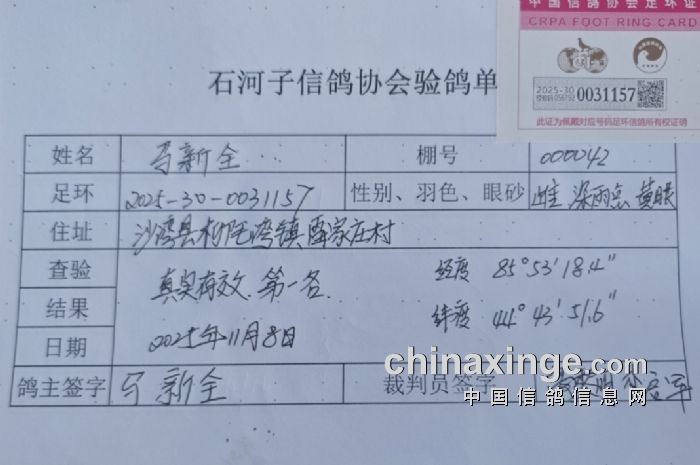 中国信鸽协会足环证
CRPA FOOT RING CARD
2025-30
0031157
此证为佩戴对应号码足环信鸽所有权证明
石河子信鸽协会验鸽单
姓名 马新全 棚号 000042
足环 2025-30-0031157 性别、羽色、眼砂 雌 深雨点 黄眼
住址 沙湾县柳毛湾镇 家庄村
查验 真实有效.第一名. 经度 85°53'18.4"
结果 纬度 44°43'51.6"
日期 2025年11月8日
鸽主签字 马新全 裁判员签字
chinaxinge.com
中国信鸽信息网